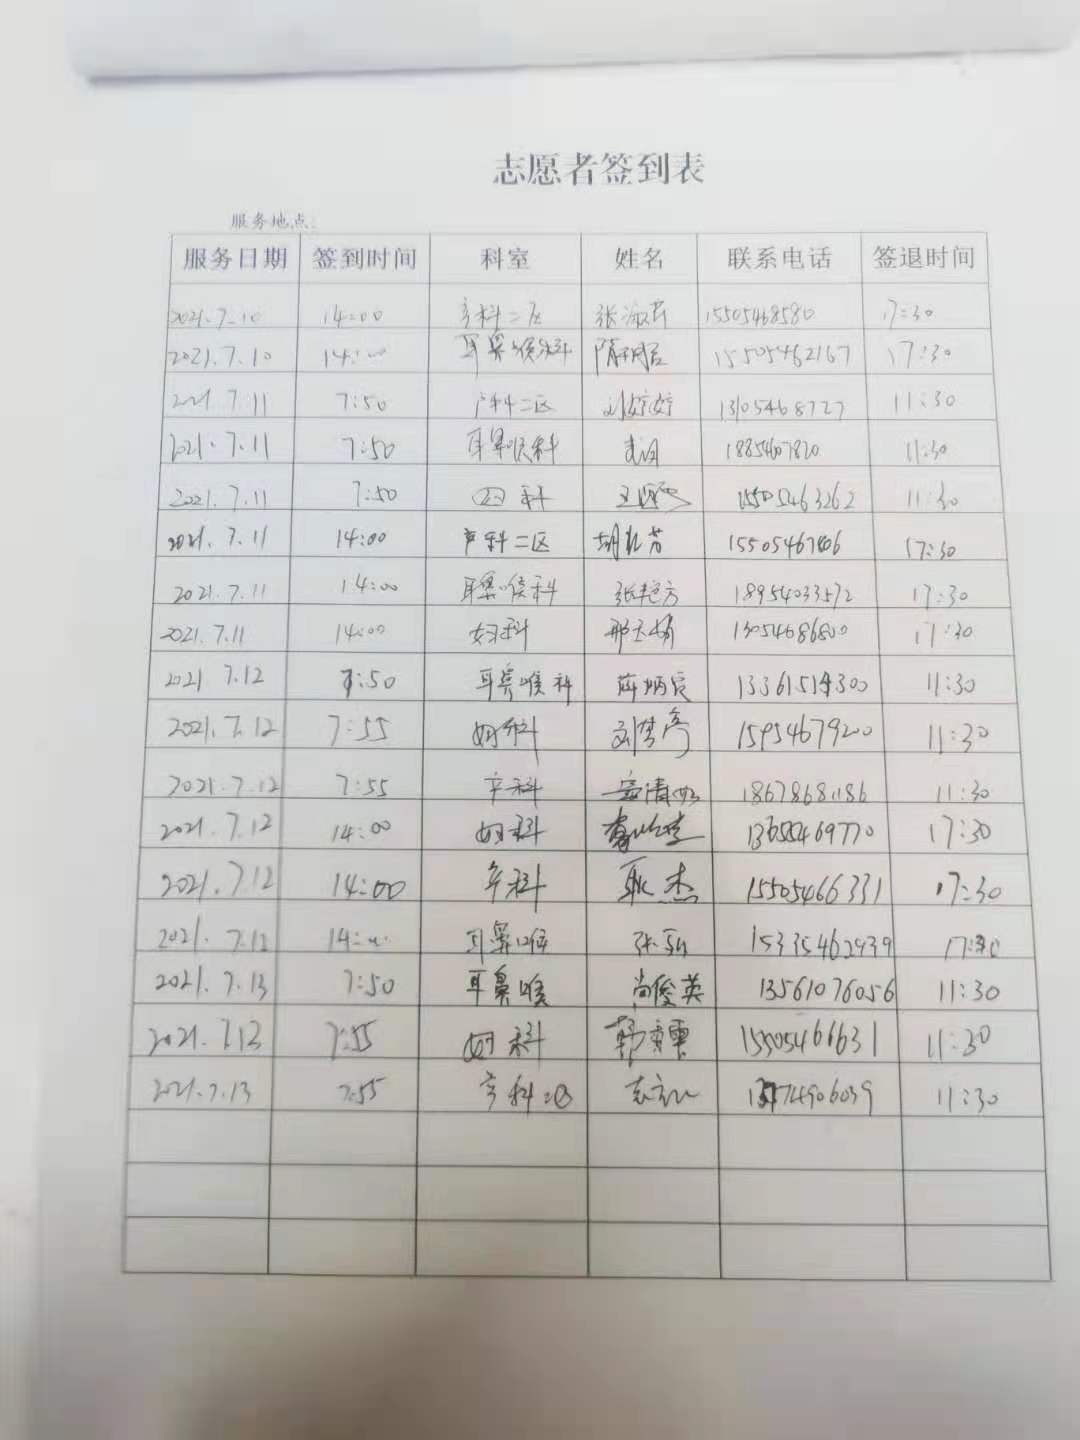 志愿者签到表
服务地点:
服务日期 签到时间 科室 姓名 联系电话 签退时间
2021.7.10 14:00 产科二区 张淑芹 15505468580 17:30
2021.7.10 14:00 耳鼻喉科 15505462167 17:30
2021.7.11 7:50 产科二区 刘婷婷 13105468727 11:30
2021.7.11 7:50 耳鼻喉科 1885467820 11:30
2021.7.11 7:50 科 15505463262 11:30
2021.7.11 14:00 产科二区 胡 芳 15505467806 17:30
2021.7.11 14:00 耳鼻喉科 张艳芳 18954033572 17:30
2021.7.11 14:00 妇科 13054686800 17:30
2021.7.12 7:50 耳鼻喉科 13361514300 11:30
2021.7.12 7:55 妇科 刘梦 15954679200 11:30
2021.7.12 7:55 产科 清 18678681186 11:30
2021.7.12 14:00 妇科 17:30
2021.7.12 14:00 产科 耿杰 15505466331 17:30
2021.7.12 14:00 耳鼻喉 张 15335462939 17:30
2021.7.13 7:50 耳鼻喉 尚俊英 13561076056 11:30
2021.7.13 7:55 妇科 韩 15505466631 11:30
2021.7.13 7:55 产科二区 11:30